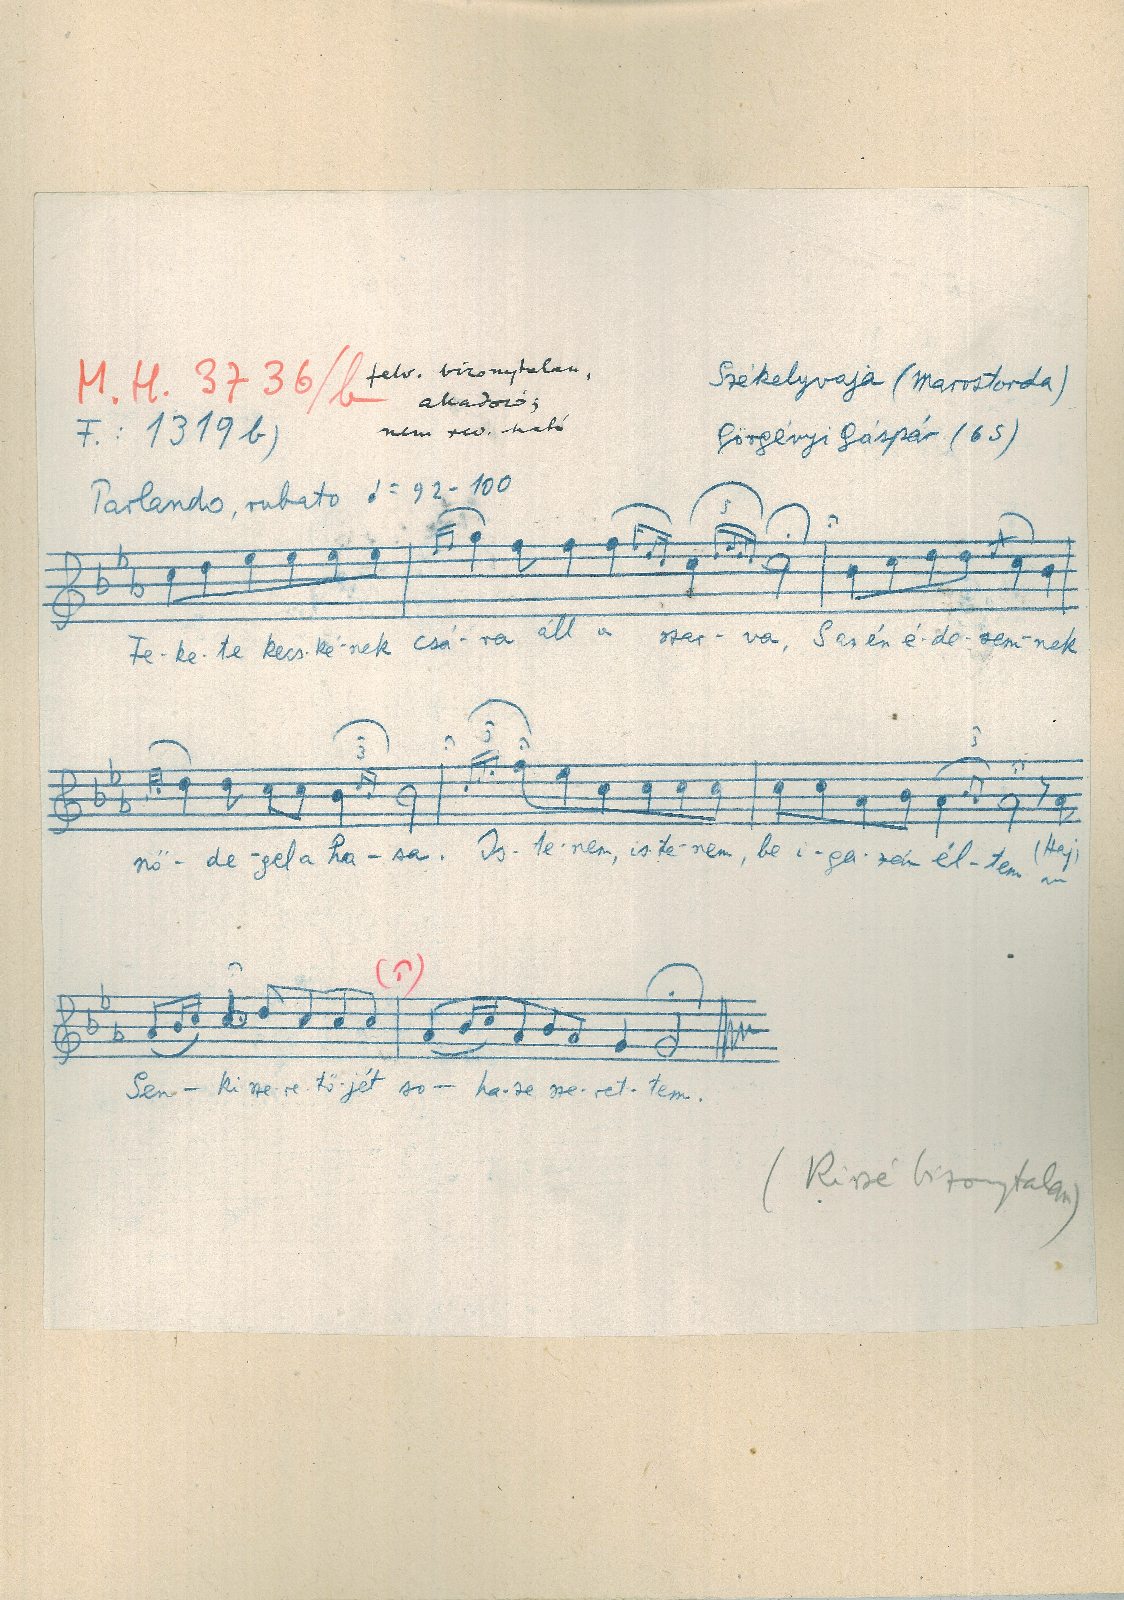 M.H. 3736/b
felv. bizonytalan,
akadozó;
nem rev. ható
Székelyvaja (Marostorda)
F.: 1319 b)
Görgényi Gáspár (65)
Parlando, rubato ♩= 92-100
5
Fe-ke-te kecs-ké-nek csá-ra áll a szar-va, S az én é-de-sem-nek
3 3 3
nö-de-gel a ha-sa. Is-te-nem, is-te-nem, be i-ga-zán él-tem (Haj)
(𝄐)
Sen-ki sze-re-tő-jét so-ha-se sze-ret-tem.
(Kissé bizonytalan)